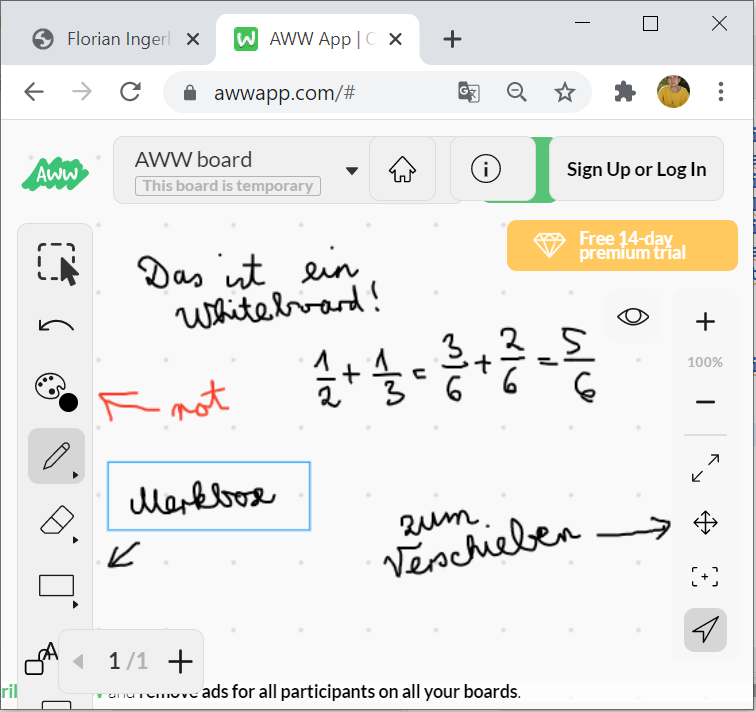 Florian Ingerl
AWW App | C
awwapp.com/#
AWW
AWW board
This board is temporary
i
Sign Up or Log In
Free 14-day
premium trial
Das ist ein
Whiteboard!
1/2 + 1/3 = 3/6 + 2/6 = 5/6
100%
rot
Merkbox
zum
Verschieben
A
1/1
and remove ads for all participants on all your boards.